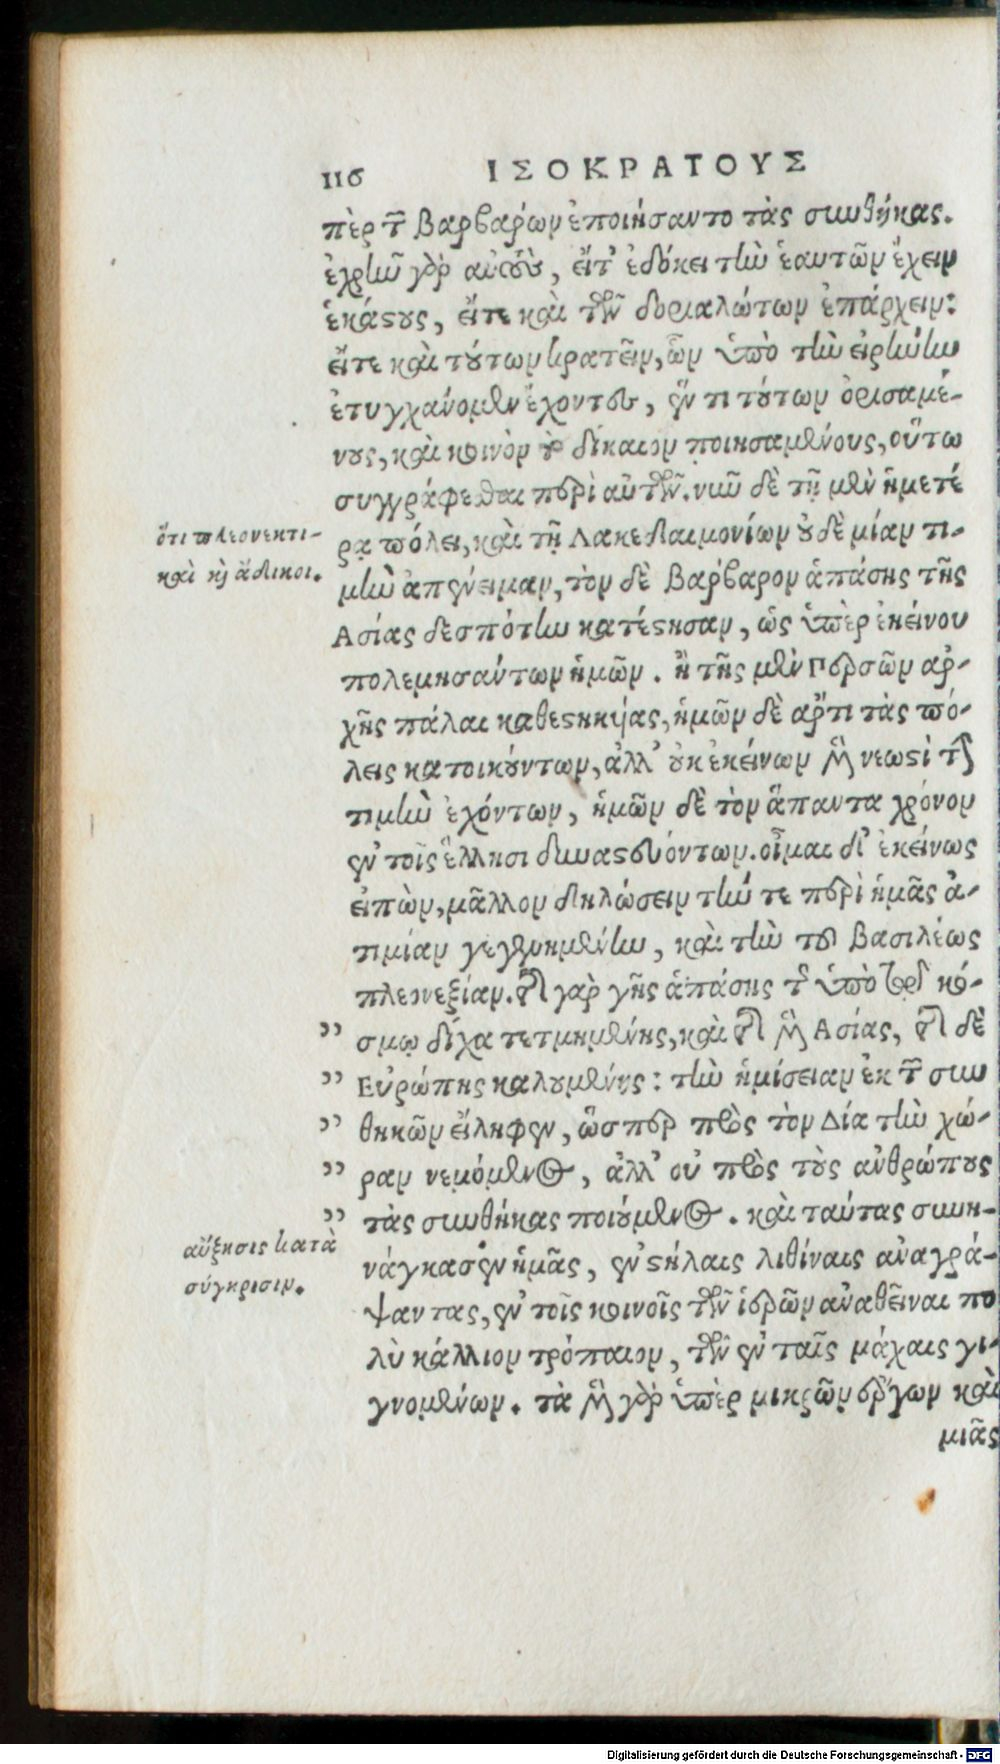 116 ΙΣΟΚΡΑΤΟΥΣ
πὲρ τῶν βαρβάρων ἐποιήσαντο τὰς συνθήκας.
ἐχρῆν γὰρ αὐτοὺς, εἴτ' ἐδόκει τὴν ἑαυτῶν ἔχειν
ἑκάστους, εἴτε καὶ τῶν δοριαλώτων ἐπάρχειν:
εἴτε καὶ τούτων κρατεῖν, ὧν ὑπὸ τὴν εἰρήνην
ἐτυγχάνομεν ἔχοντες, ἕν τι τούτων ὁρισαμέ-
νους, καὶ κοινὸν τὸ δίκαιον ποιησαμένους, οὕτω
συγγράφεσθαι περὶ αὐτῶν. νῦν δὲ τῇ μὲν ἡμετέ
ρᾳ πόλει, καὶ τῇ Λακεδαιμονίων οὐδὲ μίαν τι-
μὴν ἀπένειμαν, τὸν δὲ βάρβαρον ἁπάσης τῆς
Ἀσίας δεσπότην κατέστησαν, ὡς ὑπὲρ ἐκείνου
πολεμησάντων ἡμῶν. ἢ τῆς μὲν Περσῶν ἀρ-
χῆς πάλαι καθεστηκυίας, ἡμῶν δὲ ἄρτι τὰς πό-
λεις κατοικούντων, ἀλλ' οὐκ ἐκείνων μὲν νεωστὶ ταύτην
τιμὴν ἐχόντων, ἡμῶν δὲ τὸν ἅπαντα χρόνον
ἐν τοῖς ἕλλησι δυναστευόντων. οἶμαι δ' ἐκείνως
εἰπὼν, μᾶλλον δηλώσειν τήν τε περὶ ἡμᾶς ἀ-
τιμίαν γεγενημένην, καὶ τὴν τοῦ βασιλέως
πλεονεξίαν. τῆς γὰρ γῆς ἁπάσης τῆς ὑπὸ τῷ κό-
” σμῳ δίχα τετμημένης, καὶ τῆς μὲν Ἀσίας, τῆς δὲ
” Εὐρώπης καλουμένης: τὴν ἡμίσειαν ἐκ τῶν συν
” θηκῶν εἴληφεν, ὥσπερ πρὸς τὸν Δία τὴν χώ-
” ραν νεμόμενος, ἀλλ' οὐ πρὸς τοὺς ἀνθρώπους
” τὰς συνθήκας ποιούμενος. καὶ ταύτας συνη-
νάγκασεν ἡμᾶς, ἐν στήλαις λιθίναις ἀναγρά-
ψαντας, ἐν τοῖς κοινοῖς τῶν ἱερῶν ἀναθεῖναι πο
λὺ κάλλιον τρόπαιον, τῶν ἐν ταῖς μάχαις γι-
γνομένων. τὰ μὲν γὰρ ὑπὲρ μικρῶν ἔργων καὶ
μιᾶς
ὅτι πλεονεκτι-
καὶ κỳ ἄδικοι.
αὔξησις κατὰ
σύγκρισιν.
Digitalisierung gefördert durch die Deutsche Forschungsgemeinschaft - DFG